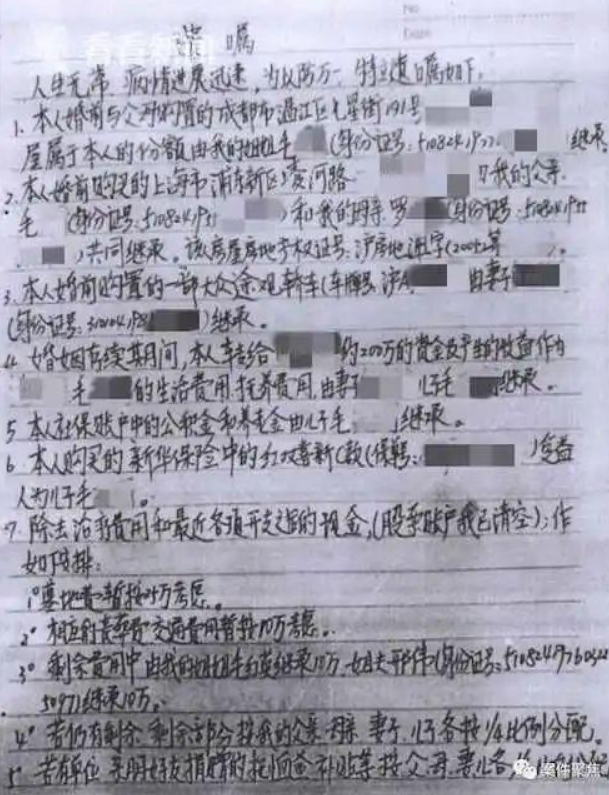 No
Date
看看新闻
遗嘱
人生无常，病情进展迅速，为以防万一，特立遗嘱如下。
1、本人婚前与父母购置的成都市温江区七星街191号
屋属于本人的份额由我的姐姐毛 (身份证号:5108241977 继承
2、本人婚前购买的上海市浦东新区凌河路 我的父亲
毛 (身份证号:510824195 )和我的母亲罗 (身份证号:5108241955
)共同继承。该房屋房地产权证号:沪房地浦字(2004)第 。
3、本人婚前购置的一部大众途观轿车(车牌号:沪A 由妻子
(身份证号:310104198 )继承。
4、婚姻存续期间,本人 给 约200万的资金及产生的收益作为
毛 的生活费用、抚养费用,由妻子 儿子毛 继承。
5 本人社保账户中的公积金和养老金由儿子毛 继承。
6、本人购买的新华保险中的红双喜新C款(保单号: )受益
人为儿子毛 。
7、除去治疗费用和最近各项开支之后的现金,(股票账户我已清空):作
如下安排:
1°墓地费暂按 万考虑。
2° 相应的丧葬费交通费用暂按10万考虑。
3° 剩余费用中由我的姐姐毛 英继承10万,姐夫邢伟(身份证号:510824197603
50971继承10万。
4° 若仍有剩余,剩余部分按我的父亲、母亲、妻子、儿子各按1/4比例分配。
5° 若有单位、亲朋好友捐赠的抚恤金、补贴等按父、母、妻、儿各
案件聚焦